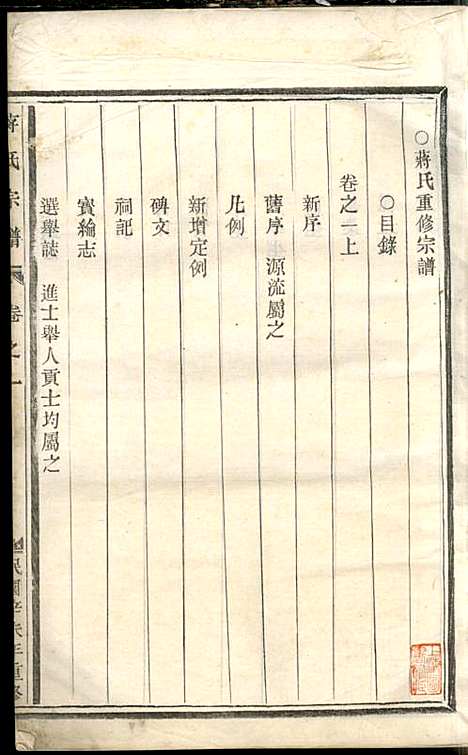 ○蔣氏重修宗譜
○目錄
卷之一上
新序
舊序 源流屬之
凡例
新增定例
碑文
祠記
寶綸志
選舉誌 進士舉人貢士均屬之
蔣氏宗譜 卷之一 民國辛未年重修